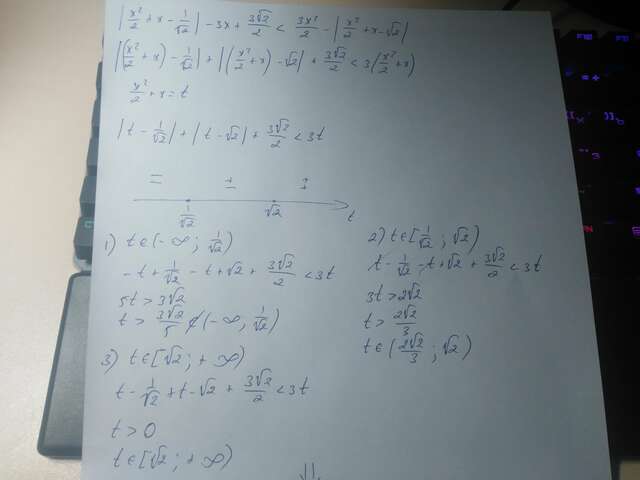 |x²/2 + x - 1/√2| - 3x + 3√2/2 < 3x²/2 - |x²/2 + x - √2|
|(x²/2 + x) - 1/√2| + |(x²/2 + x) - √2| + 3√2/2 < 3(x²/2 + x)
x²/2 + x = t
|t - 1/√2| + |t - √2| + 3√2/2 < 3t
1/√2 √2 t
1) t∈(-∞; 1/√2)
-t + 1/√2 - t + √2 + 3√2/2 < 3t
5t > 3√2
t > 3√2/5 ∉ (-∞; 1/√2)
2) t∈[1/√2; √2)
t - 1/√2 - t + √2 + 3√2/2 < 3t
3t > 2√2
t > 2√2/3
t∈(2√2/3; √2)
3) t∈[√2; +∞)
t - 1/√2 + t - √2 + 3√2/2 < 3t
t > 0
t∈[√2; +∞)
⇓